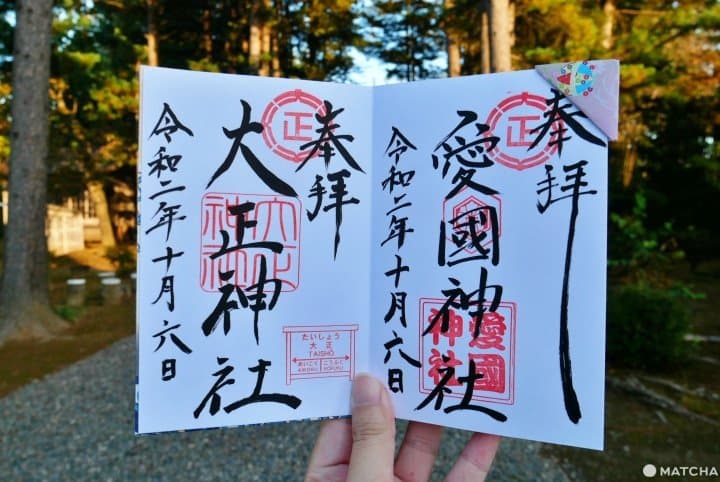 奉拝
正
愛國神社
愛國神社
令和二年十月六日
奉拝
正
大正神社
大正神社
令和二年十月六日
たいしょう
大正
TAISHO
あいこく
こうふく
MATCHA